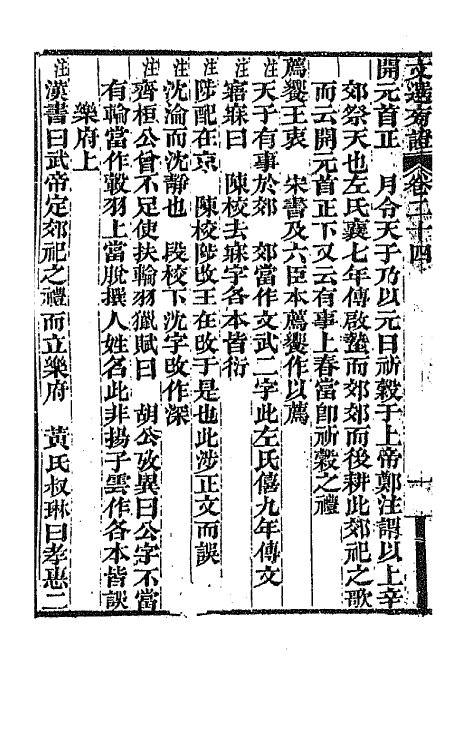 文選旁證 卷二十四 十
開元首正 月令天子乃以元日祈穀于上帝鄭注謂以上辛
郊祭天也左氏襄七年傳啟蟄而郊郊而後耕此郊祀之歌
而云開元首正下又云有事上春當卽祈穀之禮
薦饗王衷 宋書及六臣本薦饗作以薦
注天子有事於郊 郊當作文武二字此左氏僖九年傳文
注寤寐曰 陳校去寐字各本皆衍
注陟配在京 陳校陟改王在改于是也此涉正文而誤
注沈淪而沈靜也 段校下沈字改作深
注齊桓公曾不足使扶輪羽獵賦曰 胡公攷異曰公字不當
有輪當作轂羽上當脫撰人姓名此非揚子雲作各本皆誤
樂府上
注漢書曰武帝定郊祀之禮而立樂府 黃氏叔琳曰孝惠二